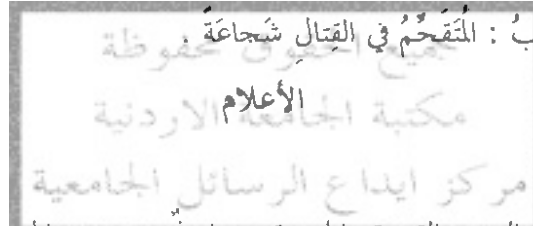 بُ : المُتَقَحِّمُ في القِتالِ شَجاعَةً .
جميع الحقوق محفوظة
الأعلام
مكتبة الجامعة الاردنية
مركز ايداع الرسائل الجامعية